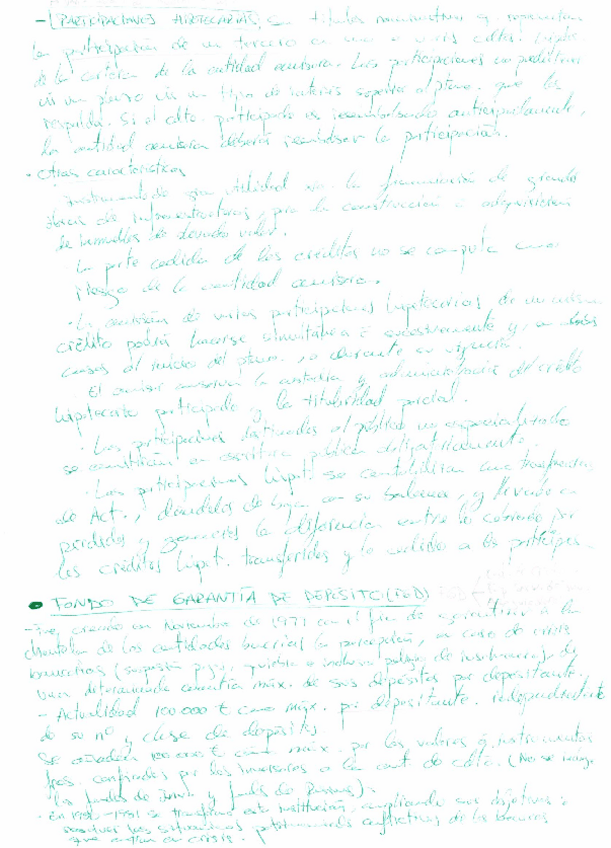 - PARTICIPACIONES HIPOTECARIAS, son títulos nominativos q. representan
la participación de un tercero en uno o varios cdtos. hipot.
de la cartera de la entidad emisora. Las participaciones no podrán
un plazo un tipo de interés superior al ptmo. que les
respalda. Si el cdto. participado es reembolsado anticipadamente,
la entidad emisora deberá reembolsar la participación.
· Otras características
Instrumento de gran utilidad la financiación de grandes
obras de infraestructuras, para la construcción o adquisición
de inmuebles de elevado valor.
La parte cedida de los créditos no se computa como
riesgo de la entidad emisora.
· La emisión de varias participaciones hipotecarias de un mismo
crédito podrá hacerse simultánea o sucesivamente y, en
casos al inicio del ptmo. o durante su vigencia.
El emisor conserva la custodia y administración del crédito
hipotecario participado y la titularidad parcial.
· Las participaciones destinadas al público no especializado
se constituirán en escritura pública obligatoriamente.
· Las participaciones hipot. se contabilizan como transferencias
de Act., dándolos de baja en su balance, y llevando a
perdidas y ganancias la diferencia entre lo cobrado por
los créditos hipot. transferidos y lo cedido a los partícipes.
• FONDO DE GARANTÍA DE DEPÓSITO (FGD)
- Fue creado en Noviembre de 1977 con el fin de garantizar a la
clientela de las entidades bancarias la percepción, en caso de crisis
bancarias (suspensión pagos, quiebra o
una determinada cuantía máx. de sus depósitos por depositante.
- Actualidad 100.000 € como máx. por depositante independiente
de su nº y clase de depósitos.
Se añaden 100.000 € como máx. por los valores o instrumentos
fros. confiados por los inversores a la ent. de cdto. (No se
los fondos de Inver. y fondos de Pensiones).
· En 1980-1981 se transforma esta institución, ampliando sus objetivos:
resolver las situaciones patrimoniales conflictivas de los bancos
que en crisis.